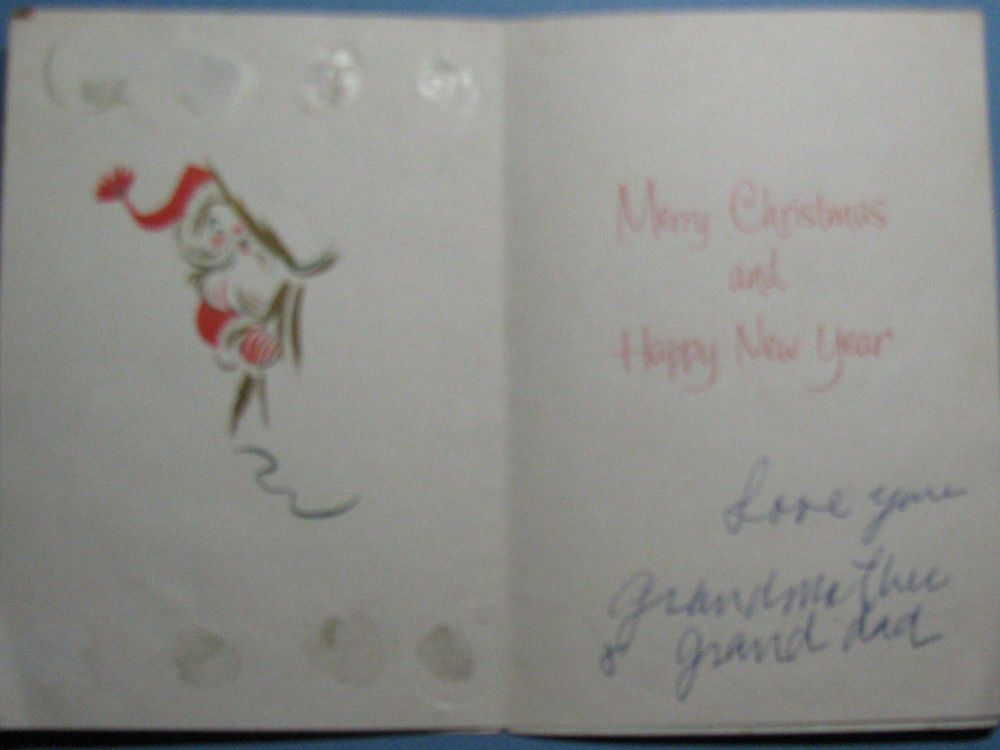 Merry Christmas
and
Happy New Year
Love you
Grandmother
& Grand dad